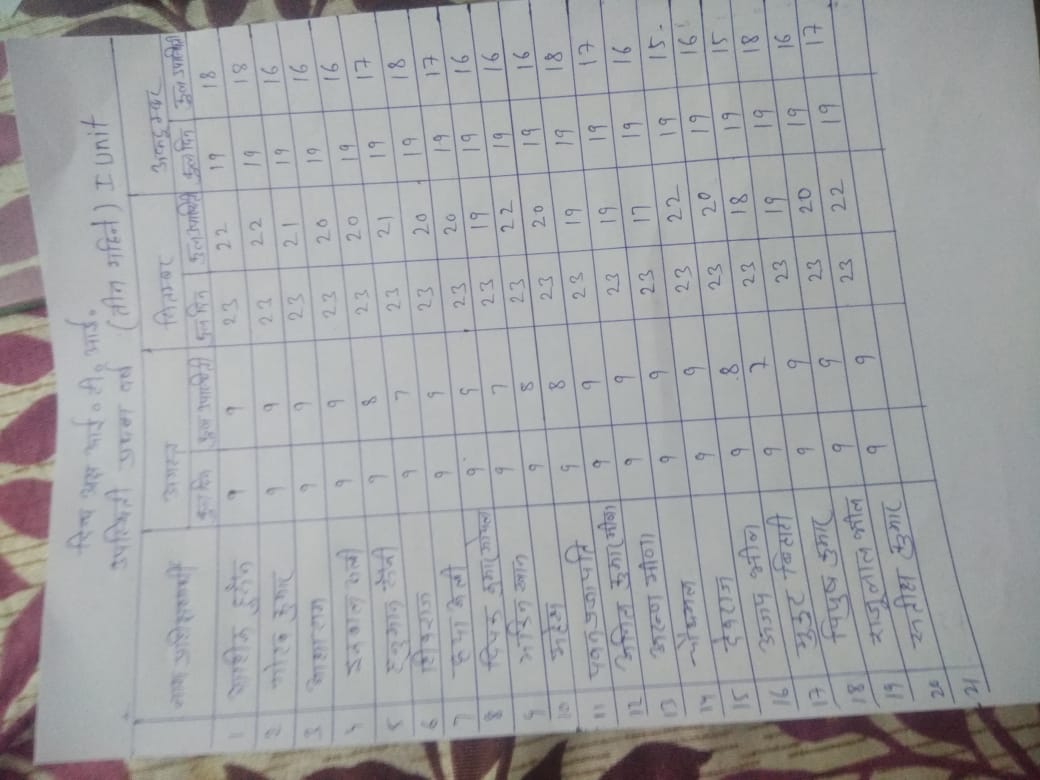 उपस्थिती प्रथम वर्ष (तीन महिने) I Unit
नाम प्रशिक्षणार्थी अगस्त सितम्बर अक्टूम्बर
कुल दिन कुल उपस्थिती कुल दिन कुल उपस्थिती कुल दिन कुल उपस्थिती
1 आशीक हुसैन 9 9 23 22 19 18
2 गोरव कुमार 9 9 23 22 19 18
3 आशाराम 9 9 23 21 19 16
4 इकबाल अली 9 9 23 20 19 16
5 हनुमान सैनी 9 8 23 20 19 16
6 शिवराज 9 7 23 21 19 17
7 9 9 23 20 19 18
8 दिपक कुमार गोयल 9 9 23 20 19 17
9 मोहिन खान 9 7 23 19 19 16
10 महेश 9 8 23 22 19 16
11 पवन प्रजापति 9 8 23 20 19 16
12 अनिल कुमार मीणा 9 9 23 19 19 18
13 अरुण मीणा 9 9 23 19 19 17
14 9 9 23 17 19 16
15 देवराज 9 9 23 22 19 15
16 अजय भील 9 8 23 20 19 16
17 मुकुट बिहारी 9 7 23 18 19 15
18 पियुष कुमार 9 9 23 19 19 18
19 राजुलाल भील 9 9 23 20 19 16
20 सतीश कुमार 9 9 23 22 19 17
21